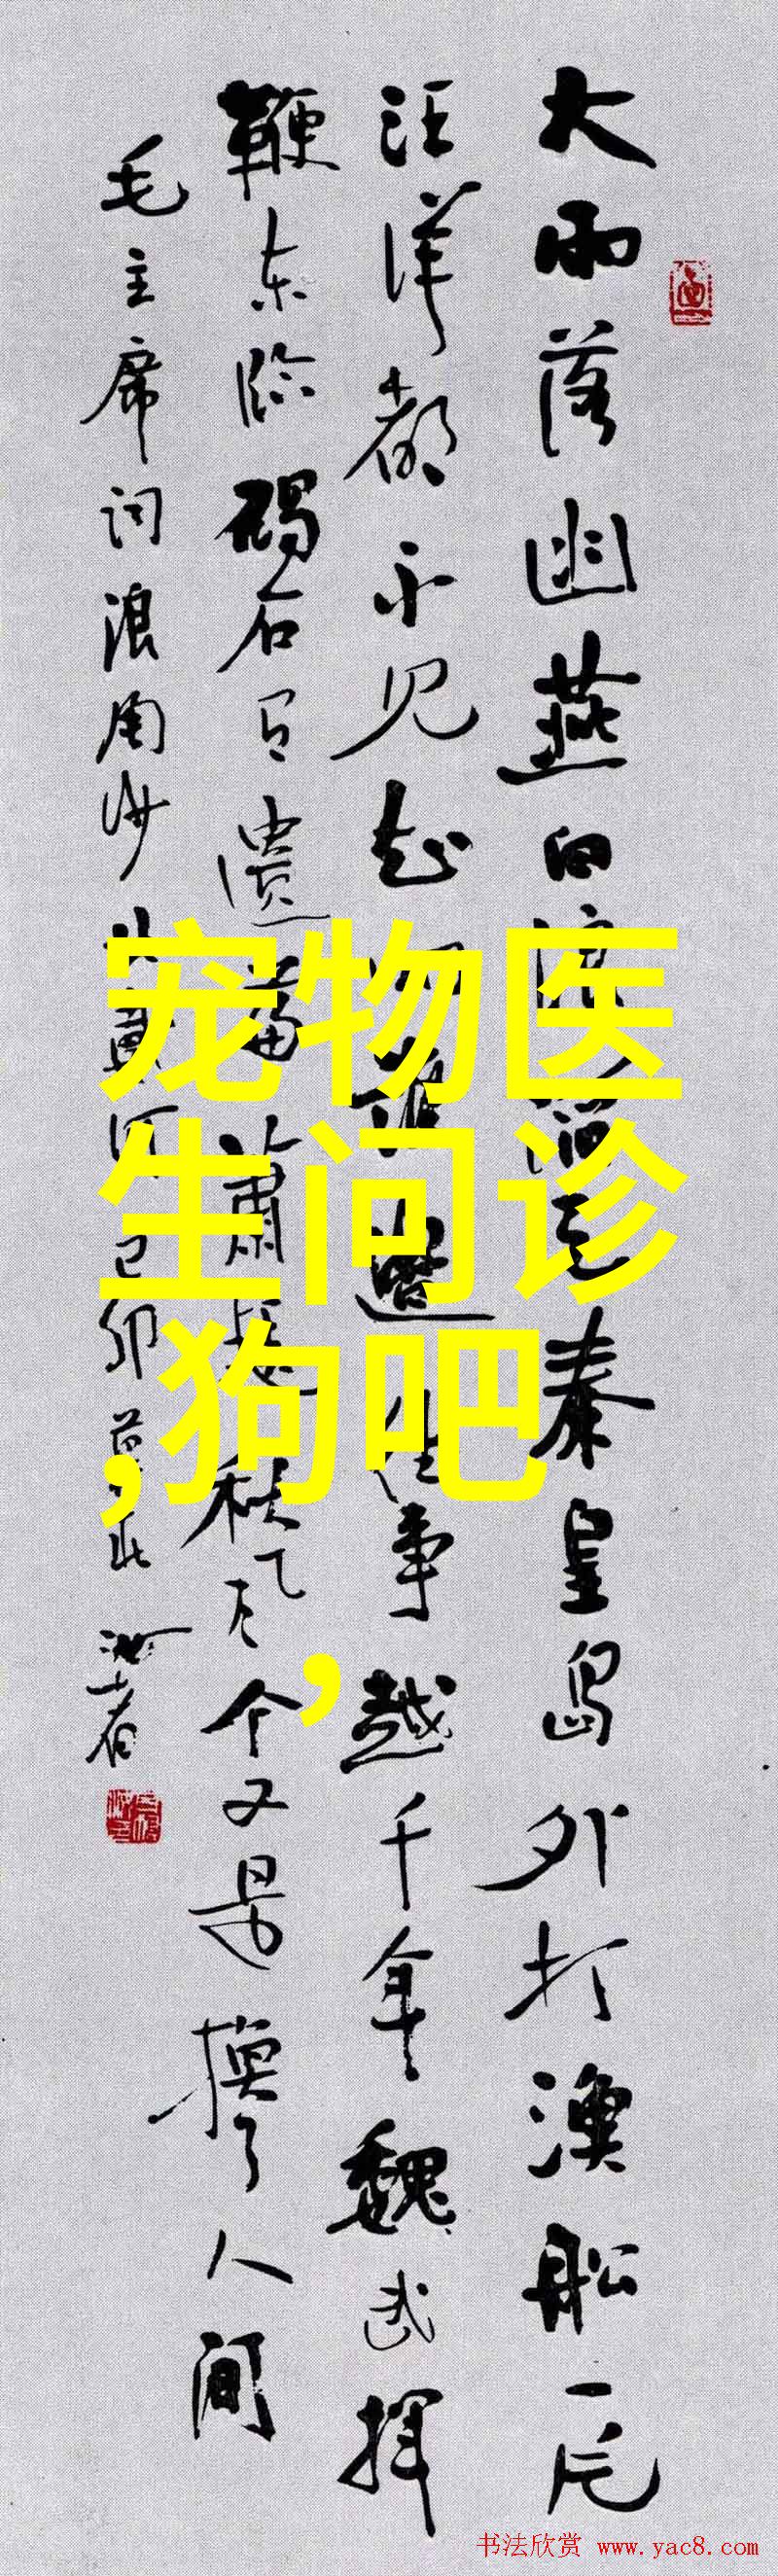 大雨落幽燕白浪滔天秦皇岛外打漁船一片
汪洋都不见知向谁邊往事越千年魏武挥
鞭东临碣石有遗篇萧瑟秋风今又是换了人间
毛主席词浪淘沙北戴河己卯
宠物医
生问诊
,狗吧
,
书法欣赏 www.yac8.com